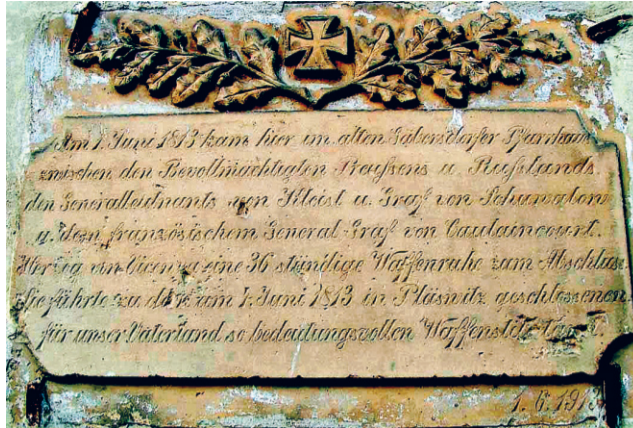 Am 1. Juni 1813 kam hier im alten Gäbersdorfer Pfarrhaus
zwischen den Bevollmächtigten Preussens u. Rußlands
den Generalleidnants von Kleist u. Graf von Schuwalow
u. dem französischem General Graf von Caulaincourt.
Herzog von eine 36 stündige Waffenruhe zum Abschluss
Sie führte zu dem am 4. Juni 1813 in Pläswitz geschlossenen
für unser Vaterland so bedeutungsvollen
1. 6. 1913